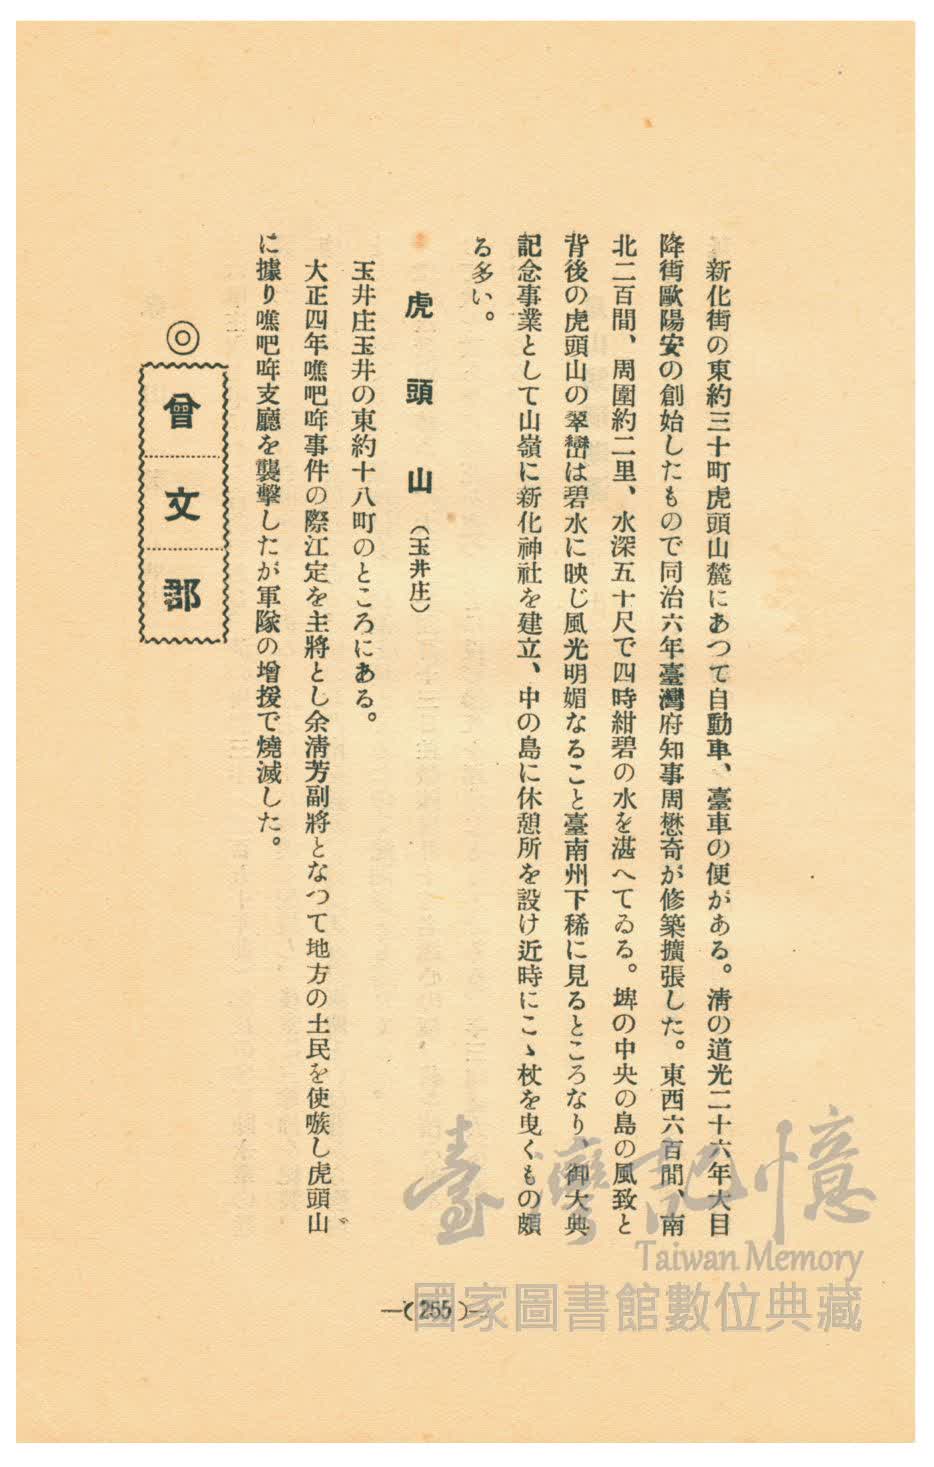 新化街の東約三十町虎頭山麓にあつて自動車、臺車の便がある。淸の道光二十六年大目
降街歐陽安の創始したもので同治六年臺灣府知事周懋奇が修築擴張した。東西六百間、南
北二百間、周圍約二里、水深五十尺で四時紺碧の水を湛へてゐる。埤の中央の島の風致と
背後の虎頭山の翠巒は碧水に映じ風光明媚なること臺南州下稀に見るところなり、御大典
記念事業として山嶺に新化神社を建立、中の島に休憩所を設け近時にこゝ杖を曳くもの頗
る多い。
虎頭山（玉井庄）
玉井庄玉井の東約十八町のところにある。
大正四年噍吧哖事件の際江定を主將とし余淸芳副將となつて地方の土民を使嗾し虎頭山
に據り噍吧哖支廳を襲擊したが軍隊の增援で燒滅した。
◎曾文郡
—(255)—
臺灣記憶
Taiwan Memory
國家圖書館數位典藏